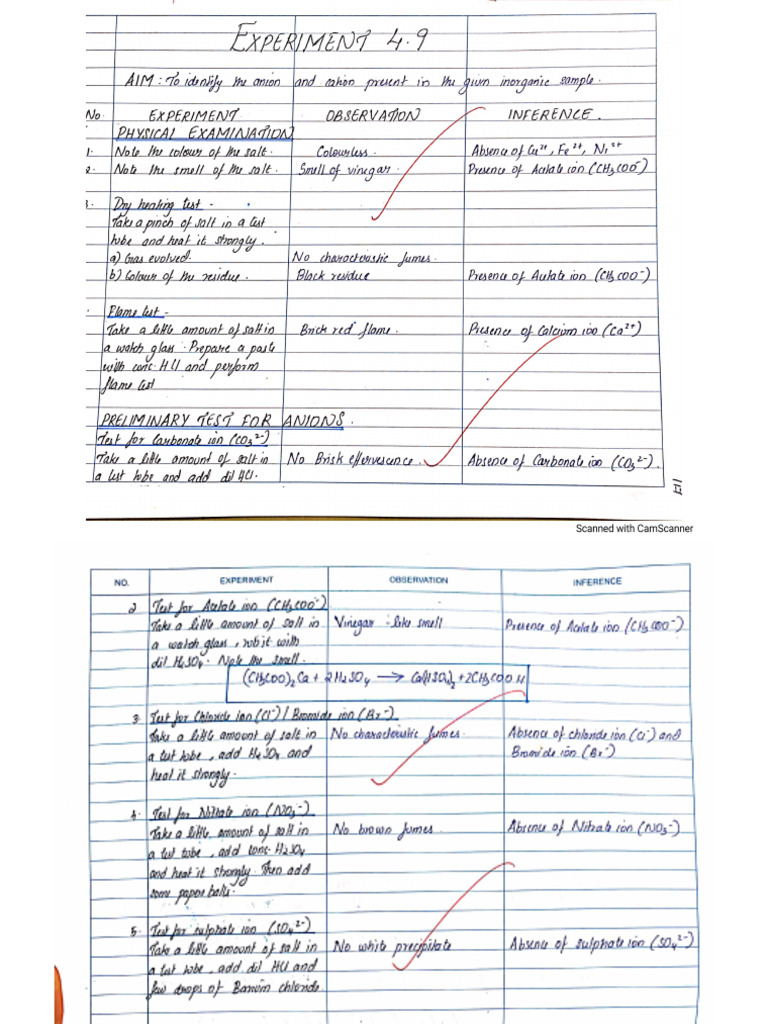 EXPERIMENT 4.9
AIM : To identify the anion and cation present in the given inorganic sample.
No. EXPERIMENT OBSERVATION INFERENCE.
PHYSICAL EXAMINATION
1. Note the colour of the salt. Colourless. Absence of Cu²⁺, Fe²⁺, Ni²⁺
2. Note the smell of the salt. Smell of vinegar. Presence of Acetate ion (CH₃COO⁻)
3. Dry heating test -
Take a pinch of salt in a test
tube and heat it strongly.
a) Gas evolved. No characteristic fumes.
b) Colour of the residue. Black residue Presence of Acetate ion (CH₃COO⁻)
Flame test -
Take a little amount of salt in Brick red flame. Presence of Calcium ion (Ca²⁺)
a watch glass. Prepare a paste
with conc. HCl and perform
flame test
PRELIMINARY TEST FOR ANIONS.
Test for Carbonate ion (CO₃²⁻)
Take a little amount of salt in No Brisk effervescence. Absence of Carbonate ion (CO₃²⁻).
a test tube and add dil HCl.
Scanned with CamScanner
NO. EXPERIMENT OBSERVATION INFERENCE
2 Test for Acetate ion (CH₃COO⁻)
Take a little amount of salt in Vinegar - like smell Presence of Acetate ion (CH₃COO⁻)
a watch glass, rub it with
dil H₂SO₄. Note the smell.
(CH₃COO)₂Ca + 2H₂SO₄ → Ca(HSO₄)₂ + 2CH₃COOH
3. Test for Chloride ion (Cl⁻) / Bromide ion (Br⁻)
Take a little amount of salt in No characteristic fumes. Absence of chloride ion (Cl⁻) and
a test tube, add H₂SO₄ and Bromide ion (Br⁻)
heat it strongly.
4. Test for Nitrate ion (NO₃⁻)
Take a little amount of salt in No brown fumes. Absence of Nitrate ion (NO₃⁻)
a test tube, add conc. H₂SO₄
and heat it strongly. Then add
some paper balls.
5. Test for sulphate ion (SO₄²⁻)
Take a little amount of salt in No white precpitate Absence of sulphate ion (SO₄²⁻)
a test tube, add dil HCl and
few drops of Barium chloride